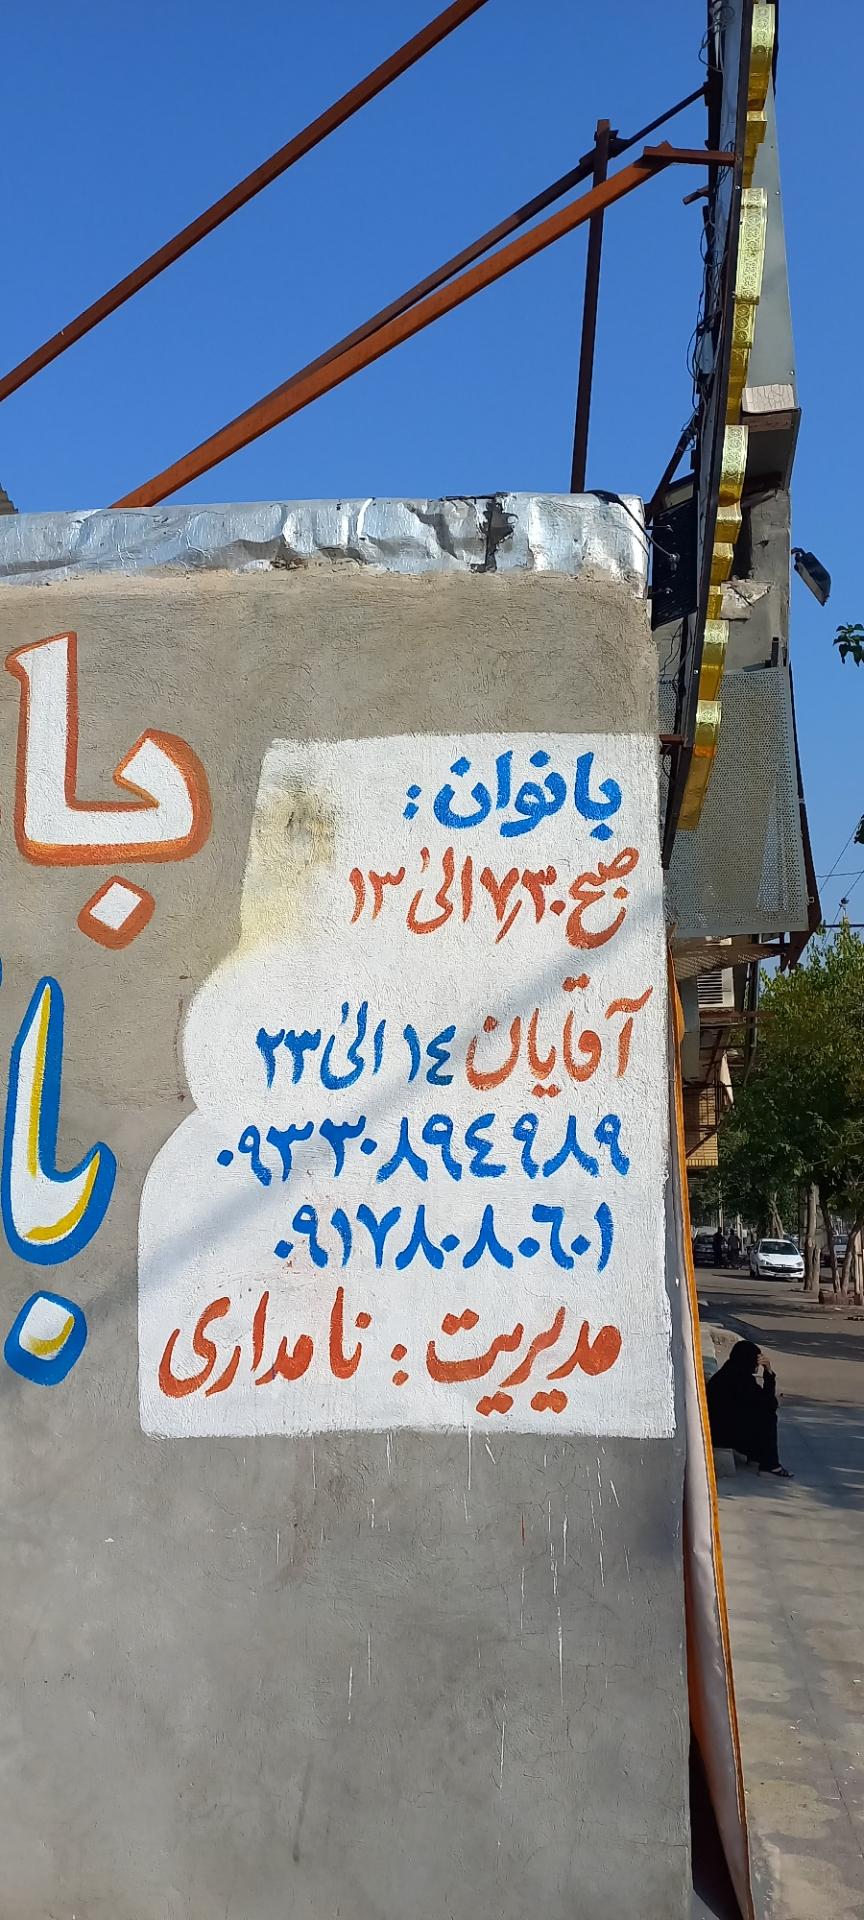 با
با
بانوان:
صبح ۷٫۳۰ الیٰ ۱۳
آقایان ۱٤ الیٰ ۲۳
۰۹۳۳۰۸۹٤۹۸۹
۰۹۱۷۸۰۸۰٦۰۱
مدیریت: نامداری